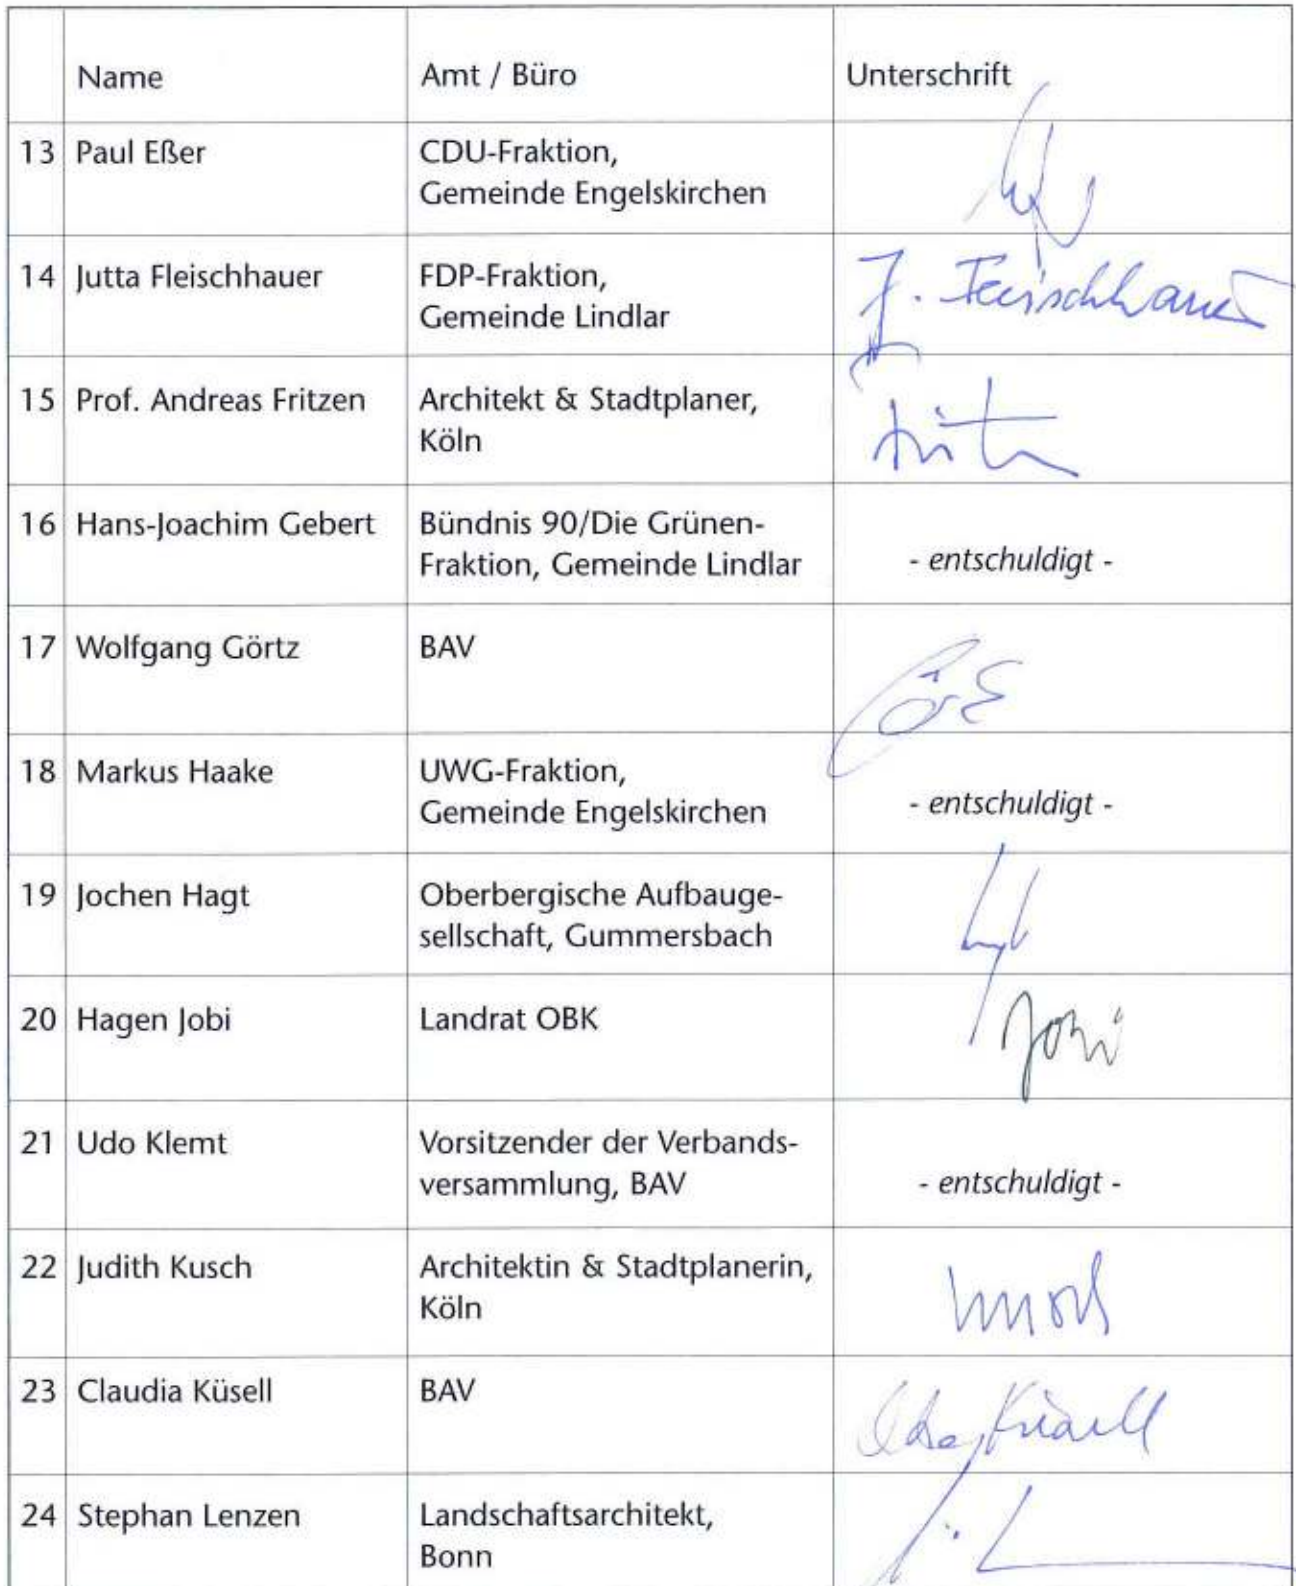 Name Amt / Büro Unterschrift
13 Paul Eßer CDU-Fraktion,
Gemeinde Engelskirchen
14 Jutta Fleischhauer FDP-Fraktion,
Gemeinde Lindlar J. Fleischhauer
15 Prof. Andreas Fritzen Architekt & Stadtplaner,
Köln
16 Hans-Joachim Gebert Bündnis 90/Die Grünen-
Fraktion, Gemeinde Lindlar - entschuldigt -
17 Wolfgang Görtz BAV
18 Markus Haake UWG-Fraktion,
Gemeinde Engelskirchen - entschuldigt -
19 Jochen Hagt Oberbergische Aufbauge-
sellschaft, Gummersbach
20 Hagen Jobi Landrat OBK Jobi
21 Udo Klemt Vorsitzender der Verbands-
versammlung, BAV - entschuldigt -
22 Judith Kusch Architektin & Stadtplanerin,
Köln
23 Claudia Küsell BAV Küsell
24 Stephan Lenzen Landschaftsarchitekt,
Bonn